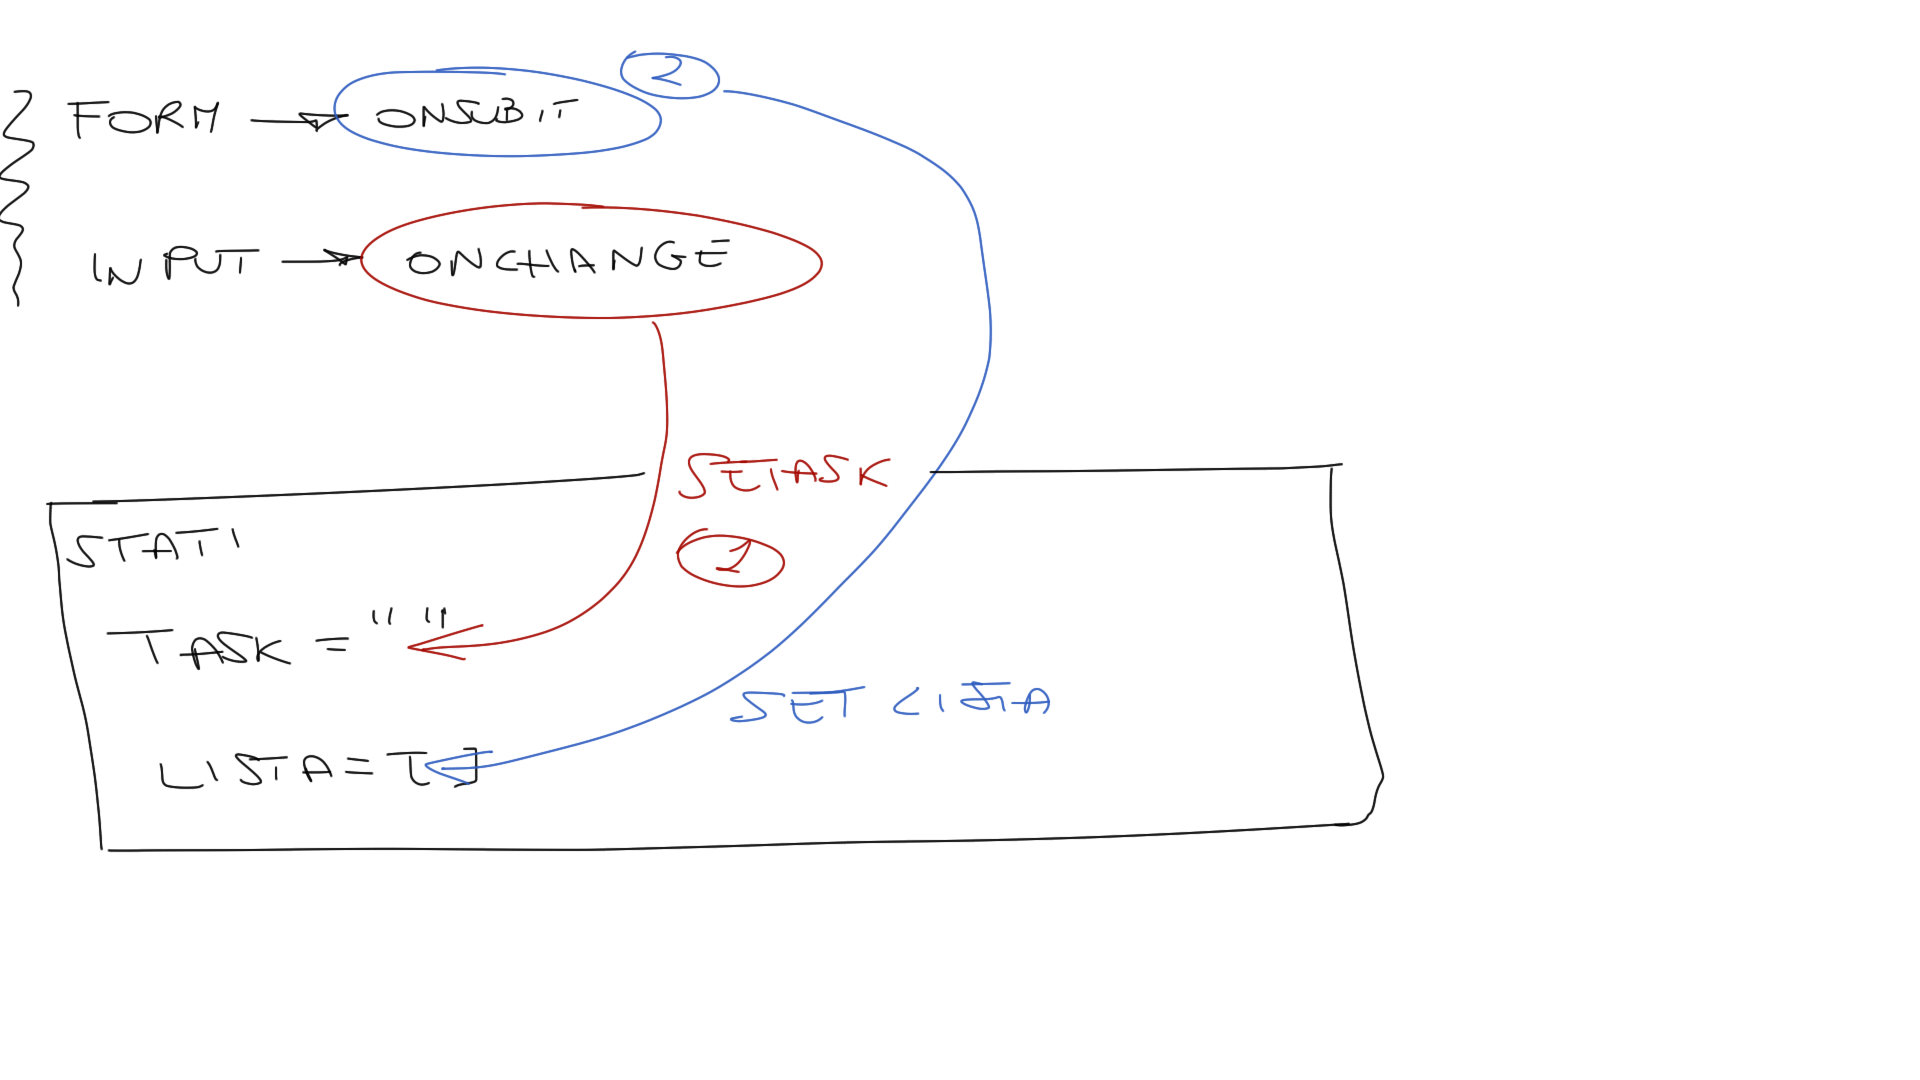 2
FORM → ONSUBIT
INPUT → ONCHANGE
SETASK
1
STATI
TASK = " "
SET LISTA
LISTA = []